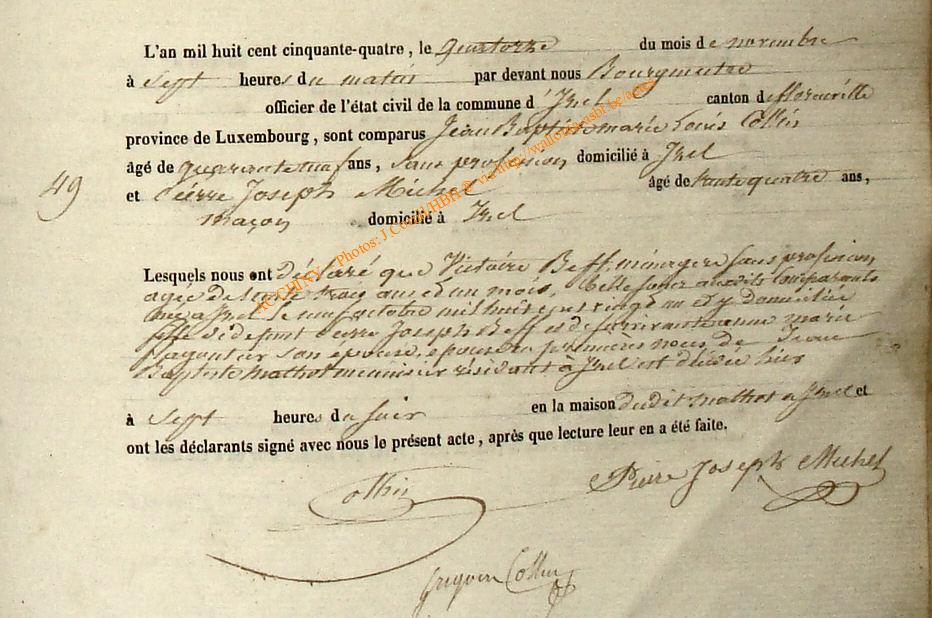 L'an mil huit cent cinquante-quatre, le quatorze du mois de novembre
à sept heures du matin par devant nous Bourgmestre
officier de l'état civil de la commune d'Izel canton de florenville
province de Luxembourg, sont comparus Jean Baptiste marie Louis Collin
âgé de quarante neuf ans, sans profession, domicilié à Izel
49
et Pierre Joseph Michel âgé de trente quatre ans,
maçon domicilié à Izel
Lesquels nous ont déclaré que Victoire Beff, ménagere sans profession,
agée de trente trois ans et un mois, Belle soeur auxdits comparants
née à Izel le neuf octobre mil huit cent vingt un et y domiciliée
fille de defunt Pierre Joseph Beff et de survivante anne marie
son épouse, épouse en premieres noces de Jean
Baptiste Mathot meunier résidant à Izel est décédée hier
à sept heures du soir en la maison dudit Mathot à Izel et
ont les déclarants signé avec nous le présent acte, après que lecture leur en a été faite.
Collin Pierre Joseph Michel
Collin
ACCHINY - Photos: J Collin HBH